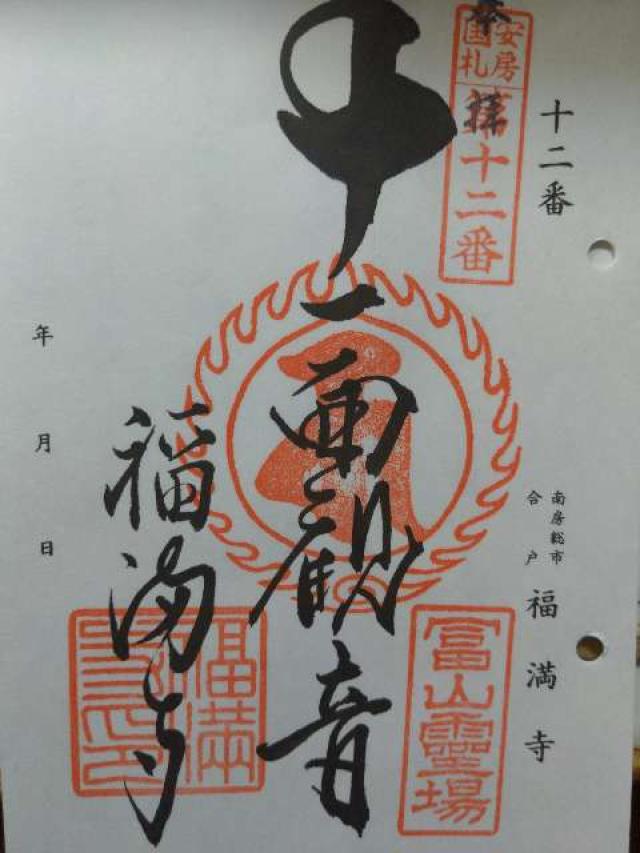 十二番
南房総市
合戸
福満寺
奉拝
安房
国札
第十二番
十一面観音
富山霊場
福満寺
福満
寺印
年 月 日